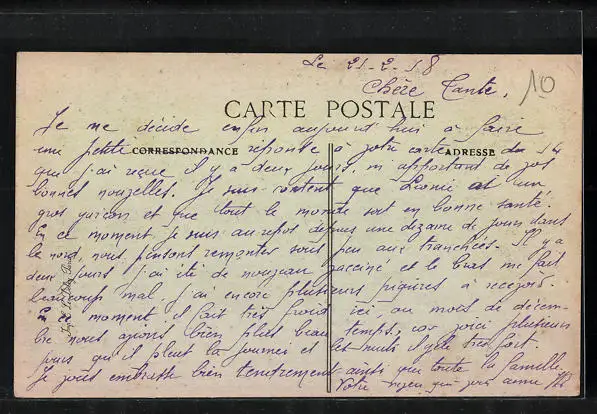 Le 21-2-18
10
Chère Tante,
CARTE POSTALE
Je me décide enfin aujourd'hui à faire
une petite réponse à votre carte du 14
CORRESPONDANCE ADRESSE
que j'ai reçue il y a deux jours, m'apportant de vos
bonnes nouvelles. Je suis content que Léonie ait un
gros garçon et que tout le monde soit en bonne santé.
En ce moment je suis au repos depuis une dizaine de jours dans
le nord, nous pensons remonter sous peu aux tranchées. Il y a
deux jours j'ai été de nouveau vacciné et le bras me fait
beaucoup mal, j'ai encore plusieurs piqures à recevoir.
En ce moment il fait très froid ici, au mois de décem-
bre nous avions bien plus beau temps, car voici plusieurs
jours qu'il pleut la journée et les nuits il gèle très fort.
Je vous embrasse bien tendrement ainsi que toute la famille
Votre neveu qui vous aime